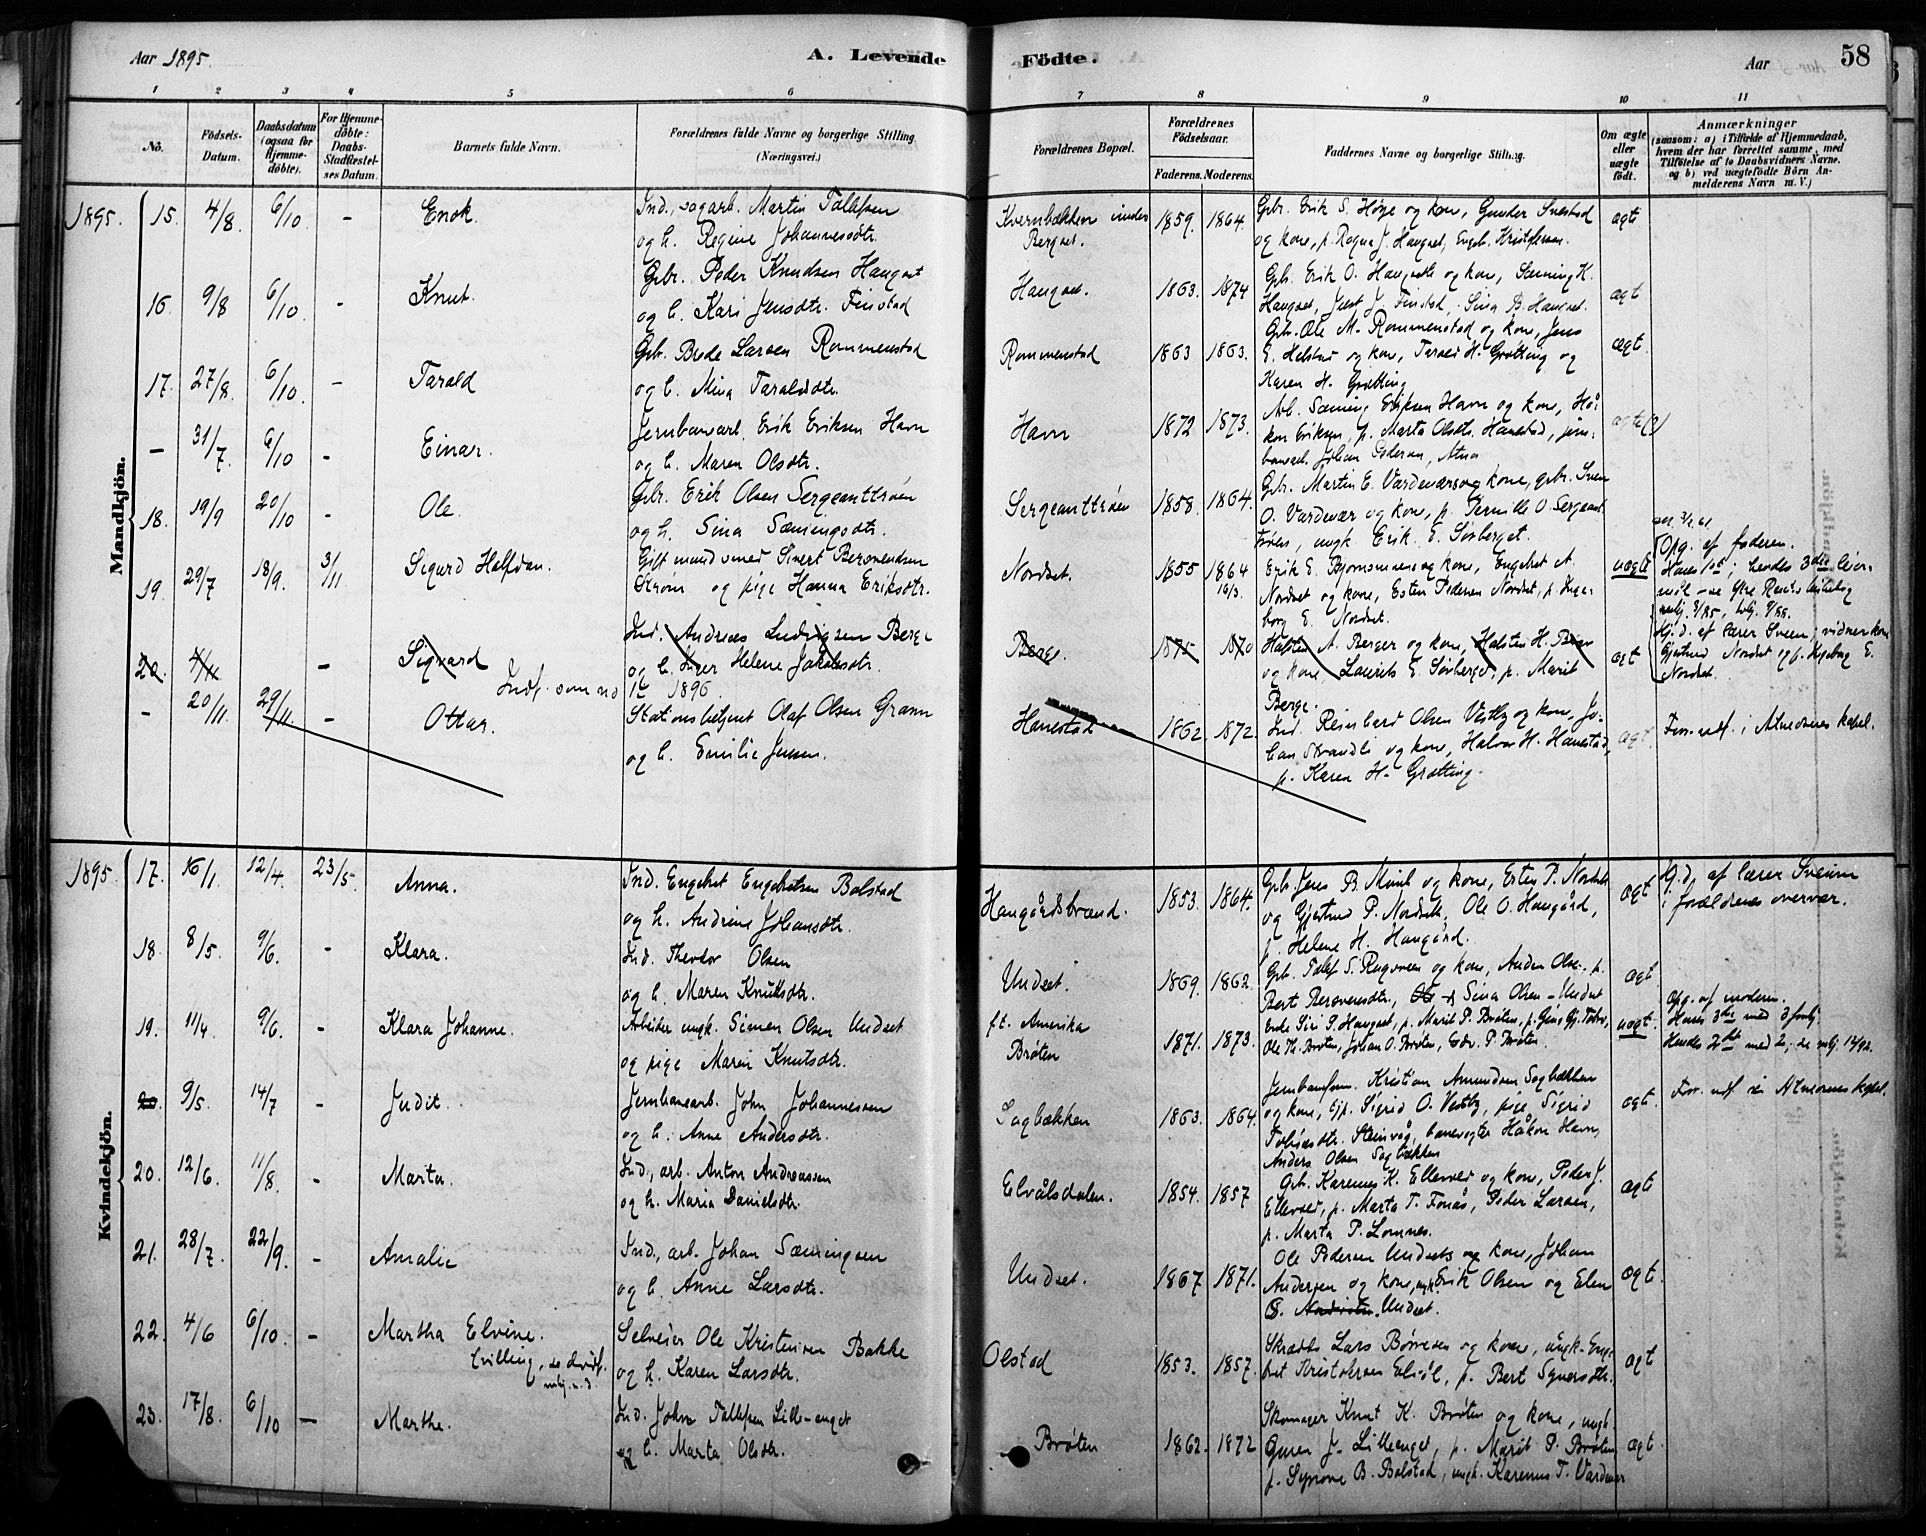 Aar 1895.
A. Levende Födte.
Aar
58
1 2 3 4 5 6 7 8 9 10 11
No.
Födsels-
Datum.
Daabsdatum
(ogsaa for
Hjemme-
døbte).
For Hjemme-
døbte:
Daabs-
Stadfæstel-
ses Datum.
Barnets fulde Navn.
Forældrenes fulde Navne og borgerlige Stilling.
(Næringsvei.)
Forældrenes Bopæl.
Forældrenes
Födselsaar.
Faderens. Moderens.
Faddernes Navne og borgerlige Stilling.
Om ægte
eller
uægte
födt.
Anmærkninger
(saasom: a) i Tilfælde af Hjemmedaab,
hvem der har forrettet samme, med
Tilföielse af to Daabsvidners Navne,
og b) ved uægtefödte Börn An-
melderens Navn m. V.)
Mandkjön.
1895. 15. 4/8 6/10 - Enok.
Ind., sagarb. Martin Tollefsen
og h. Regine Johannesdtr.
Kvernbækken under
Bergset.
1859. 1864.
Gbr. Erik S. Høye og kone, Gunder Svestad
og kone, p. Ragna J. Haugset, Engeb. Kristofersen.
ægte
16. 9/8 6/10 - Knut.
Gbr. Peder Knudsen Haugset
og h. Kari Jensdtr. Finstad
Haugset.
1863. 1874
Gbr. Erik O. Haugseth og kone, Sæming K.
Haugset, Jens J. Finstad, Sina B. Haugset.
ægt
17. 27/8. 6/10. - Tarald
Gbr. Brede Larsen Rommenstad
og h. Mina Taraldsdtr.
Rommenstad
1863 1863.
Gbr. Ole M. Rommenstad og kone, Jens
E. Helstad og kone, Tarald H. Grøtting og
Karen H. Grøtting
ægt.
- 31/7. 6/10 - Einar.
Jernbanearb. Erik Eriksen Havn
og h. Maren Olsdtr.
Havn
1872 1873.
Arb. Sæming Eriksen Havn og kone, Hå-
kon Eriksen, p. Marta Olsdtr. Hanestad, jern-
banearb. Johan Pedersen, Atna
ægte(?)
18. 19/9 20/10 - Ole.
Gbr. Erik Olsen Sergeanttrøen
og h. Sina Sæmingsdtr.
Sergeanttrøen
1858. 1864.
Gbr. Martin E. Værdevær og kone, gbr. Sven
O. Vardevær og kone, p. Pernille O. Sergeant-
trøen, ungk Erik E. Sørberget.
19. 29/7 18/9. 3/11. Sigurd Halfdan.
Gift mand smed Sivert Bersvendsen
Strøm og pige Hanna Eriksdtr.
Nordset.
1855 1864
16/3.
Erik E. Bjørnsmoen og kone, Engebret A.
Nordset og kone, Esten Pedersen Nordset, p. Inge-
borg E. Nordset.
uægte
Opg. af faderen.
Hans 1ste; hendes 3die leier-
mål
Hj. d. af lærer Sveen; vidner kone
Gjertrud Nordset og p. Ingeborg E.
Nordset.
20. 4/11 - Sigvard
Ind. Andreas Ludvigsen Berge
og h. Inger Helene Jakobsdtr.
Indf. som no 1 1896.
Berge.
1875 1870
Halsten A. Berger og kone, Halsten H. Berg
og kone, Laurits E. Sørberget, p. Marit
Berge.
ægt
- 20/11. 29/11. - Ottar.
Stationsbetjent Olaf Olsen Gramm
og h. Emilie Jensen.
Hanestad
1862. 1872.
Ind. Reinhard Olsen Vestby og kone, Jo-
han Strandli og kone, Halvor H. Hanestad,
p. Karen H. Grøtting.
ægt.
Forr. udf. i Atneosens kapel.
Kvindekjön.
1895. 17. 16/1 12/4. 23/5. Anna.
Ind. Engebret Engebretsen Bolstad
og h. Andrine Johansdtr.
Haugårdsbrænd.
1853. 1864.
Gbr. Jens B. Midt og kone, Esten P. Nordset
og Gjertrud P. Nordset, Ole O. Haugård,
p. Helene H. Haugård.
ægt
Hj. d. af lærer Sveum
i forældrenes overvær.
18. 8/5. 9/6. - Klara.
Ind. Theodor Olsen
og h. Maren Knutsdtr.
Undset.
1869. 1862.
Gbr. Tollef S. Rugsveen og kone, Anders Olsen, p.
Bert Bersvendsdtr., Sina Olsen Undset
ægt
19. 11/4. 9/6. - Klara Johanne.
Arbeider ungk. Simen Olsen Undset
og pige Maren Knutsdtr.
f.t. Amerika
Brøten
1871. 1873.
Enke Siri P. Haugset, p. Marit P. Brøten,
Ole Th. Brøten, Johan O. Brøten, Edv. P. Brøten.
uægt.
Opg. af moderen.
Hans 3die med 3 forskj.
Hendes 2det med 2, se mlj. 14/92.
20. 9/5. 14/7 - Judit.
Jernbanearb. John Johannessen
og h. Anne Andersdtr.
Sagbækken
1863. 1864.
Jernbaneform. Kristian Amundsen Sagbækken
og kone, Gjp. Sigrid O. Vestby, pige Sigrid
Tobiasdtr. Steinvåg, banevogter Håkon Havn,
Anders Olsen Sagbækken
ægt.
Forr. udf. i Atneosens kapel.
20. 12/6. 11/8. - Marta.
Ind., arb. Anton Andreassen
og h. Maria Danielsdtr.
Elvålsdalen.
1854. 1857
Gbr. Karenus K. Ellevold og kone, Peder J.
Ellevold, p. Marta T. Fonås, Peder Larsen,
p. Marta P. Lomnes.
ægte
21. 28/7. 22/9. - Amalie
Ind., arb. Johan Sæmingsen
og h. Anne Larsdtr.
Undset.
1867. 1871.
Ole Pedersen Undsets og kone, Johan
Andersen og kone, ungk. Erik Olsen og Elen
O. Undset.
ægt.
22. 4/6 6/10. - Martha Elvine.
tvilling, se dødf.
Selveier Ole Kristensen Bakke
og h. Karen Larsdtr.
Olstad
1853. 1857.
Skrædder Lars Børresen og kone, ungk. Enge-
bret Kristofersen Elvål, p. Bert Syversdtr.
ægt
23. 17/8. 6/10 - Marthe.
Ind. John Tollefsen Lille-enget
og h. Marta Olsdtr.
Brøten
1862. 1872
Skomager Knut K. Brøten og kone, ungk.
Guren J. Lilleenget, p. Marit P. Brøten
p. Synnøve B. Bolstad, ungk. Karenus T. Vardevær
ægt.